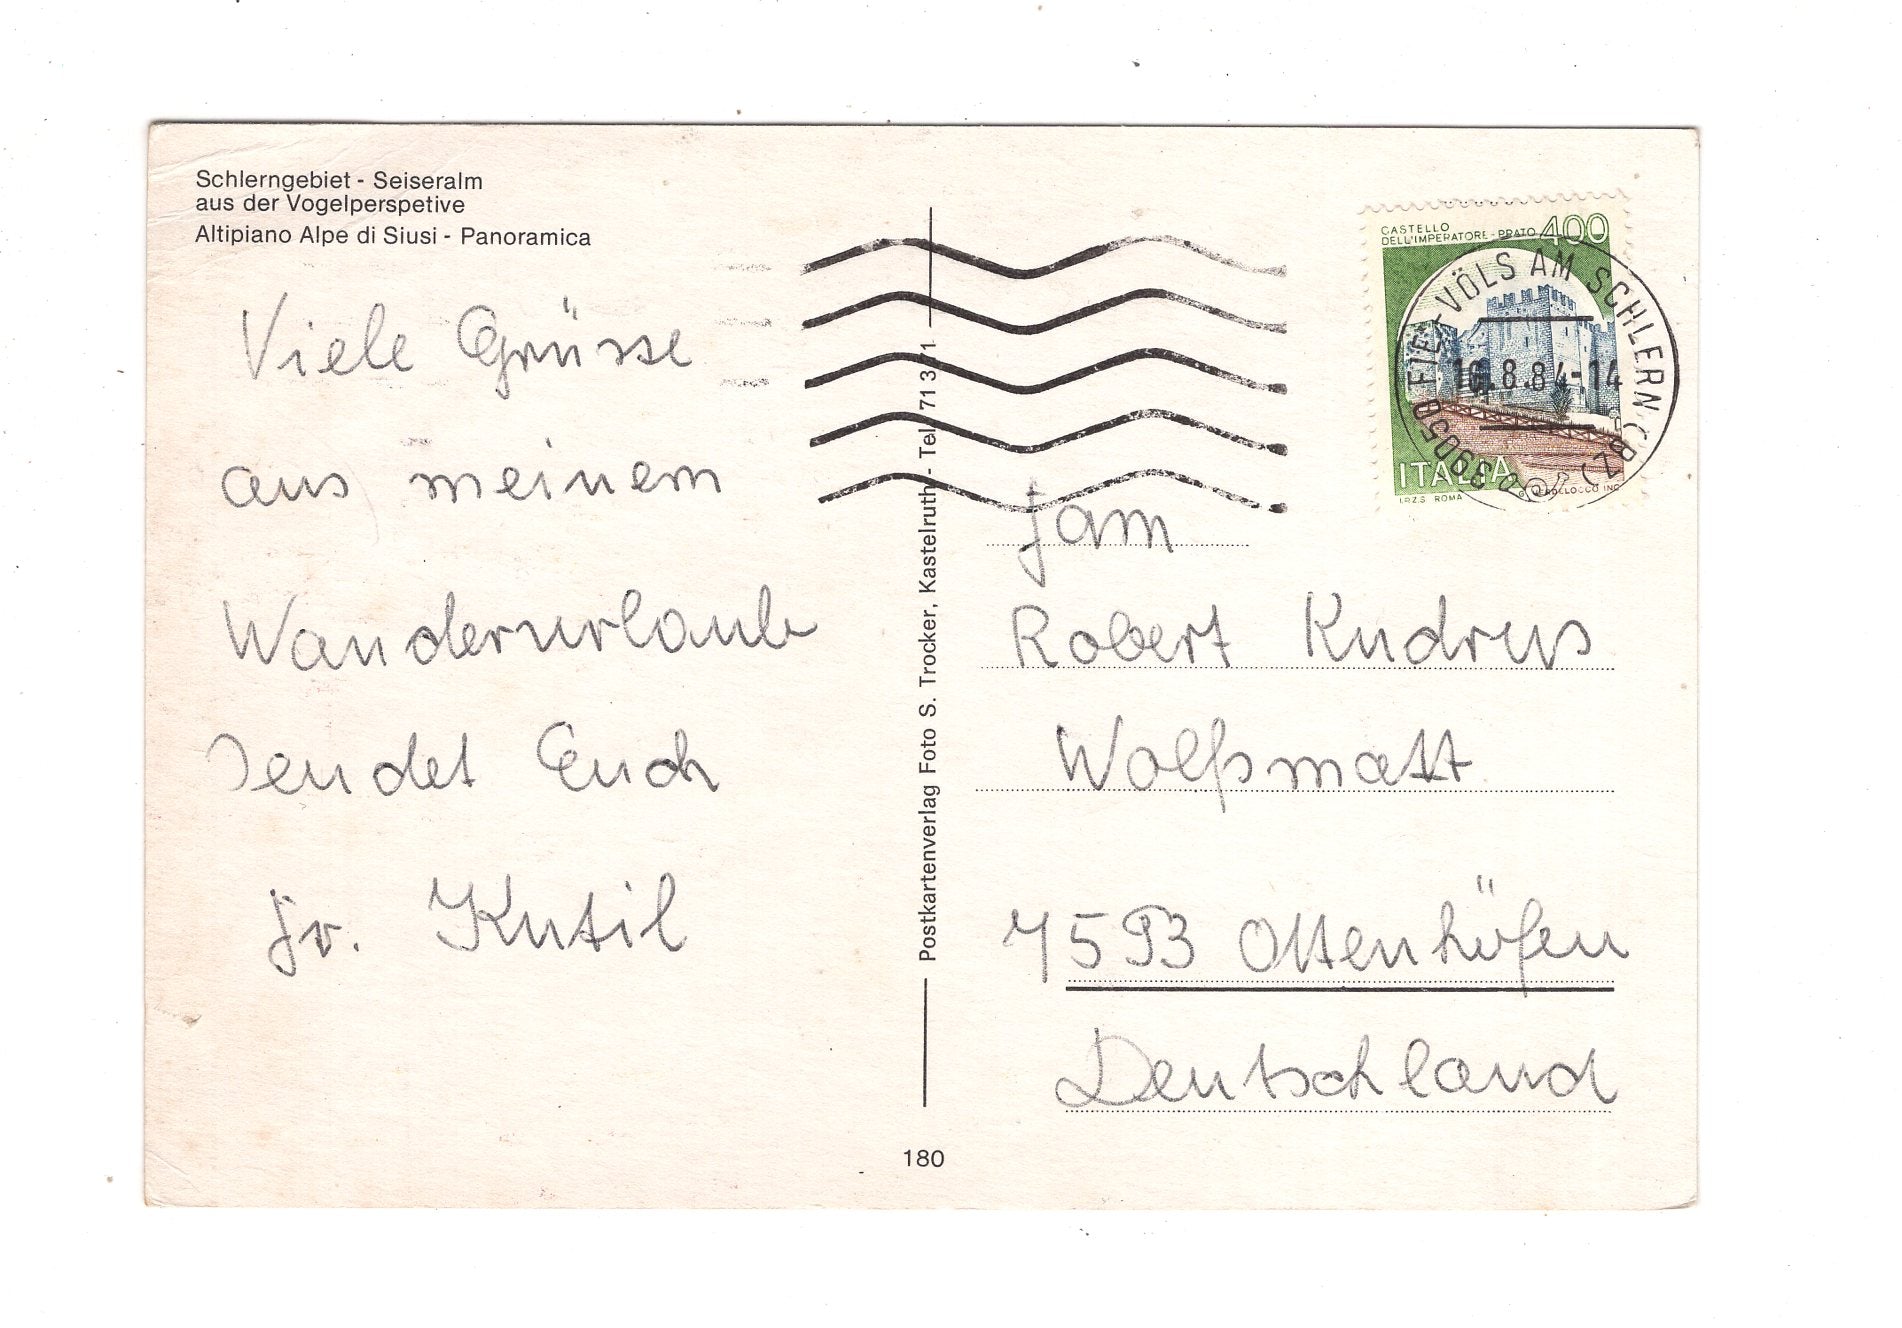 Schlerngebiet - Seiseralm
aus der Vogelperspetive
Altipiano Alpe di Siusi - Panoramica
Viele Grüsse
aus meinem
Wanderurlaub
sendet Euch
Fr. Kutil
Postkartenverlag Foto S. Trocker, Kastelruth - Tel. 71 3 1
180
CASTELLO
DELL'IMPERATORE - PRATO 400
ITALIA
I.P.Z.S. ROMA
39050 FIE' - VÖLS AM SCHLERN (BZ)
16.8.84-14
Fam
Robert Kudrus
Wolfsmatt
7593 Ottenhöfen
Deutschland